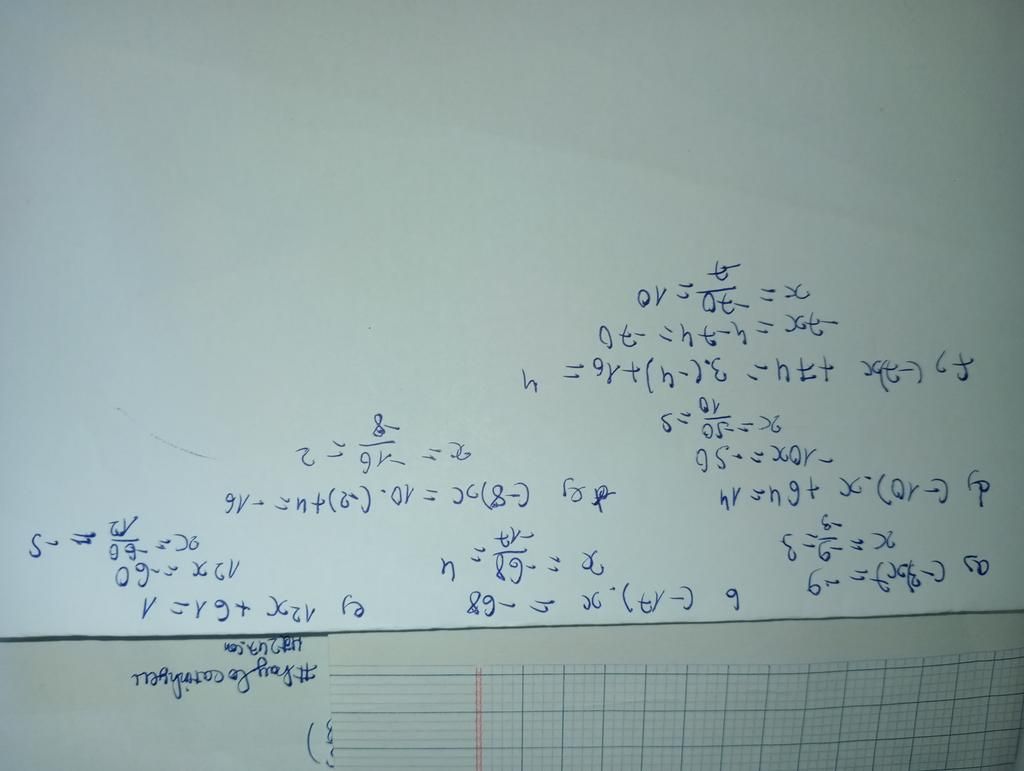 a) (-3x) = -9
x = -9/-3 = 3
b (-17).x = -68
x = -68/-17 = 4
c) 12x + 61 = 1
12x = -60
x = -60/12 = -5
d) (-10).x + 64 = 14
-10x = -50
x = -50/10 = 5
e) (-8)x = 10.(-2)+4 = -16
x = -16/-8 = 2
f) (-7)x +74 = 3.(-4)+16 = 4
-7x = 4-74 = -70
x = -70/7 = 10